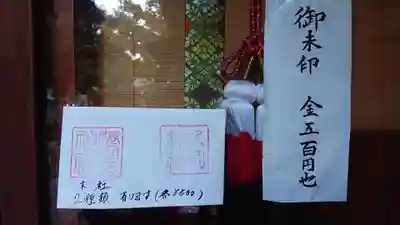 御朱印 金五百円也
末社
2種類 有ります(各¥500)